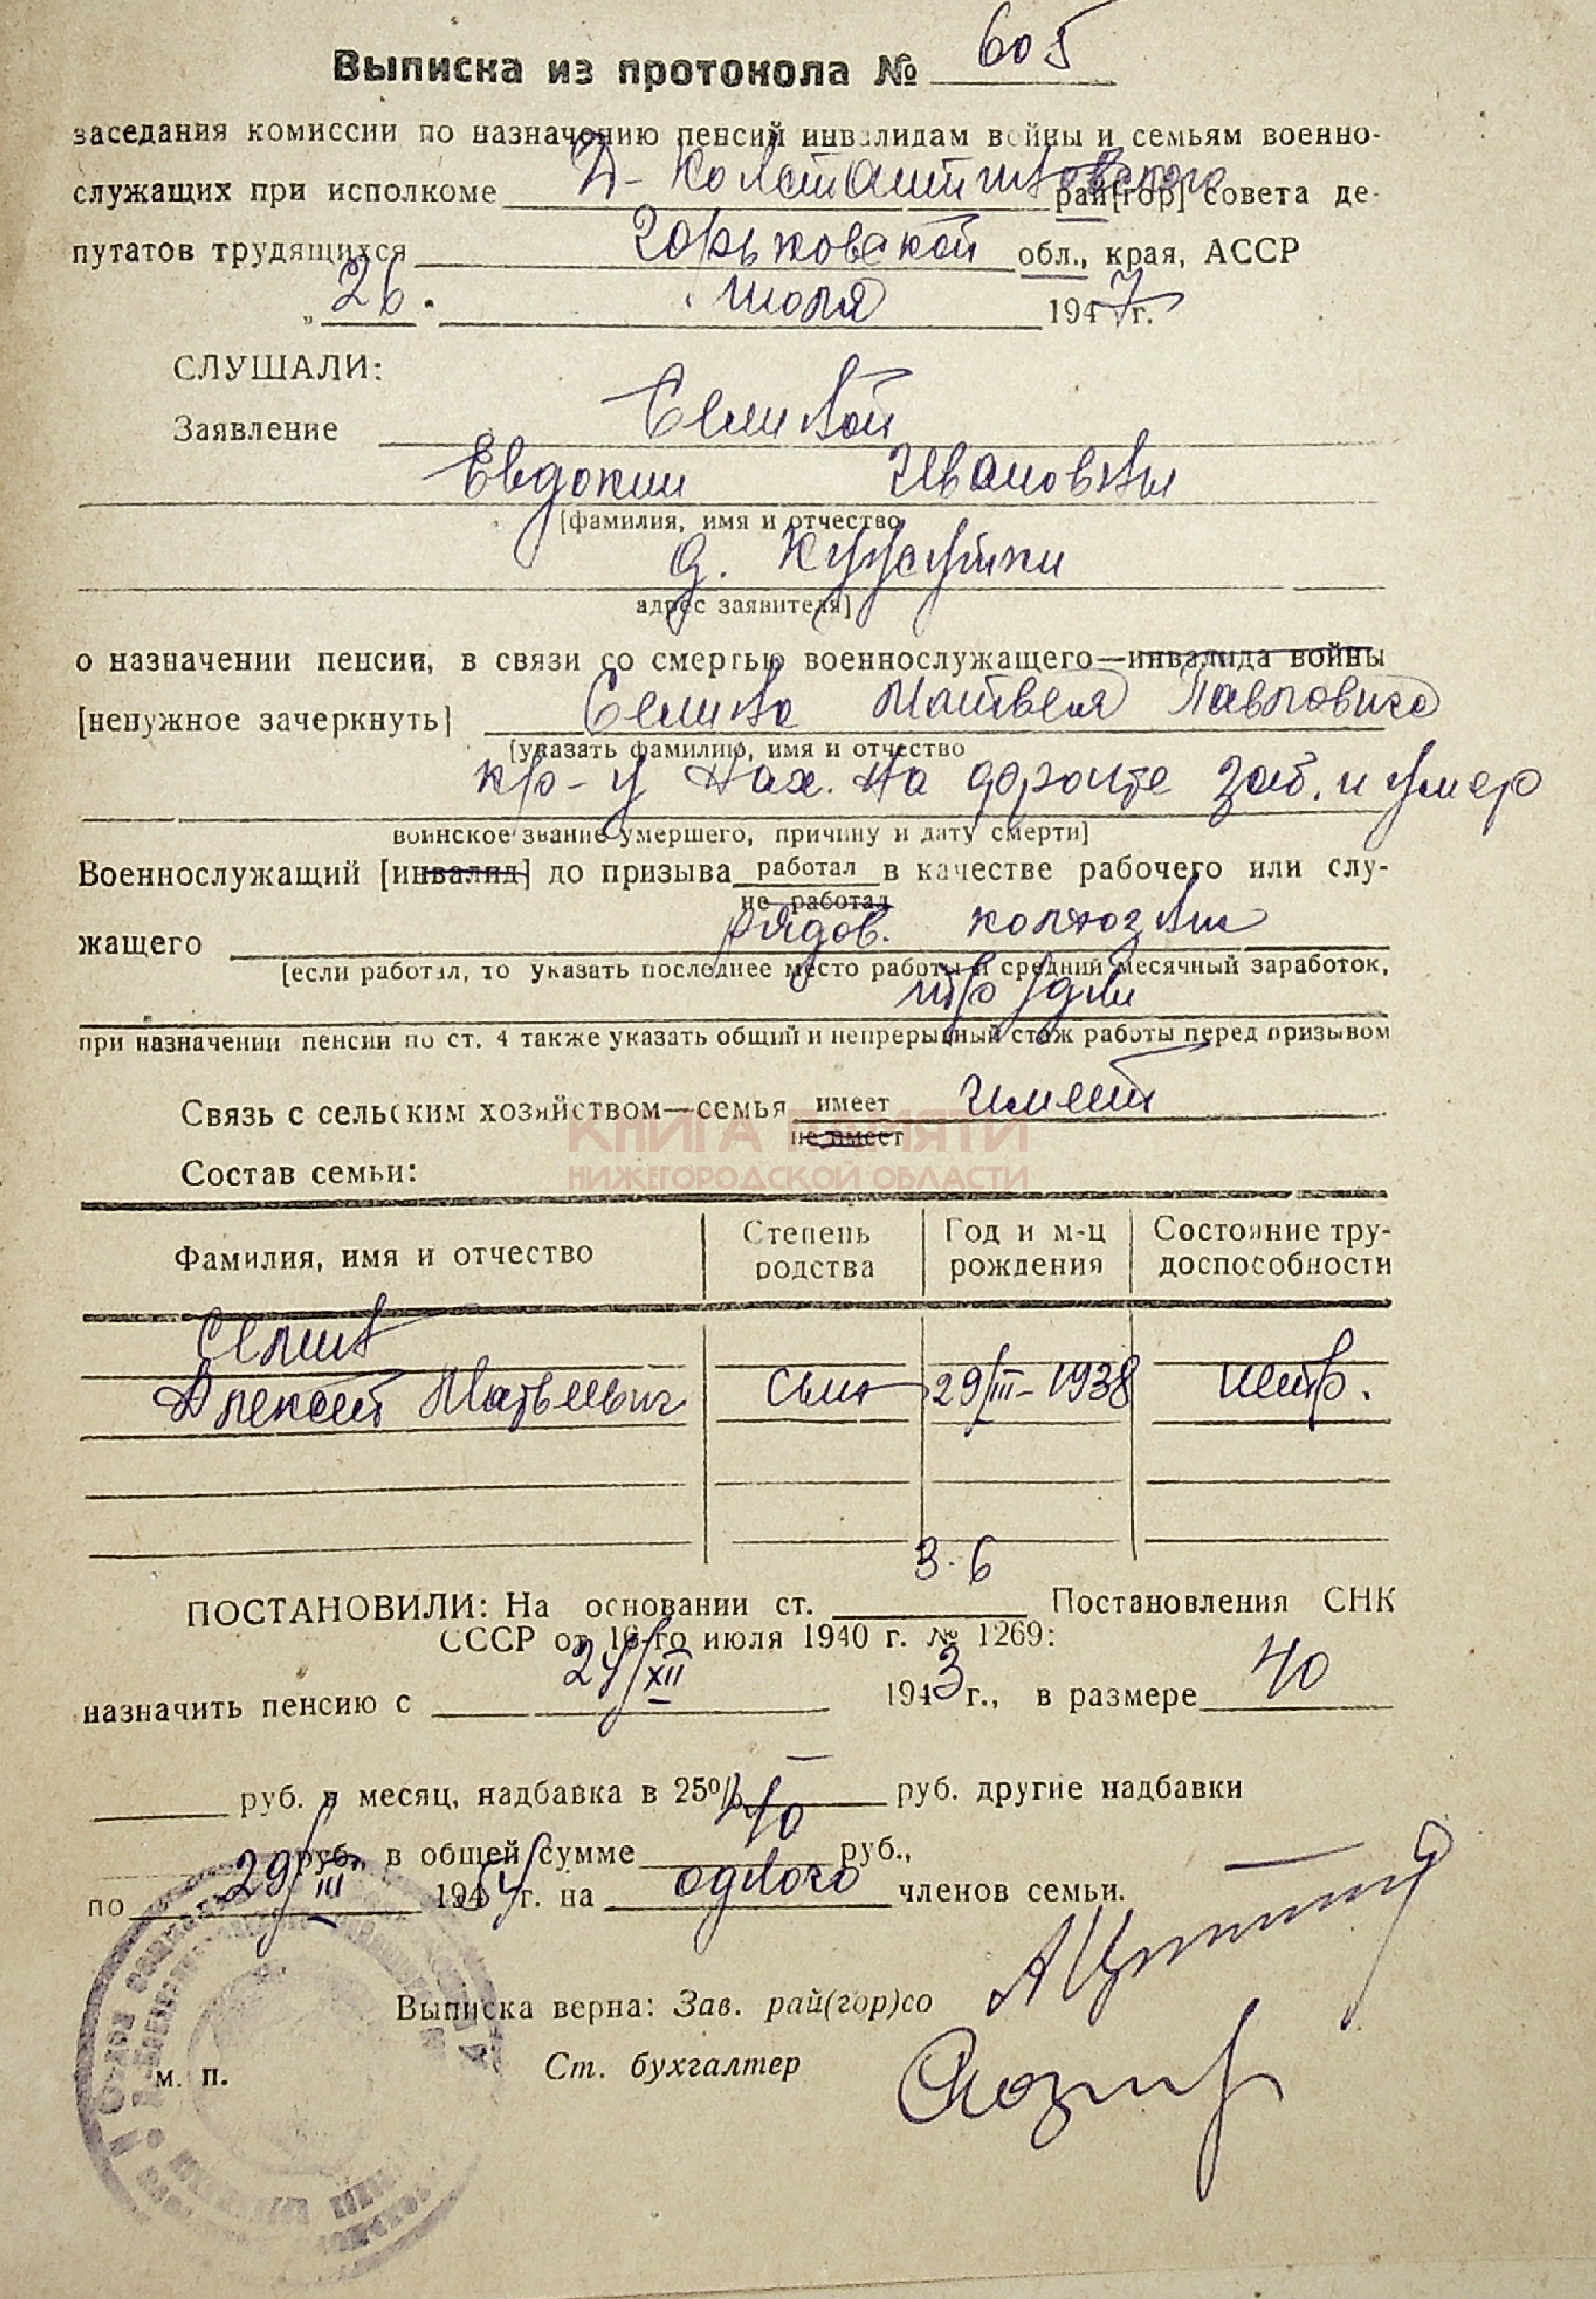 Выписка из протокола № 605
заседания комиссии по назначению пенсий инвалидам войны и семьям военно-
служащих при исполкоме Д-Константиновского рай[гор] совета де-
путатов трудящихся Горьковской обл., края, АССР
„26" июля 1947 г.
СЛУШАЛИ:
Заявление Семиной
Евдокии Ивановны
[фамилия, имя и отчество
д.
адрес заявителя]
о назначении пенсии, в связи со смертью военнослужащего—инвалида войны
[ненужное зачеркнуть] Семина Матвея Павловича
[указать фамилию, имя и отчество
кр-ц нах. на фронте заб. и умер
воинское звание умершего, причину и дату смерти]
Военнослужащий [инвалид] до призыва работал в качестве рабочего или слу-
не работал
жащего рядов. колхозник
[если работал, то указать последнее место работы и средний месячный заработок,
тр/дни
при назначении пенсии по ст. 4 также указать общий и непрерывный стаж работы перед призывом
Связь с сельским хозяйством—семья имеет имеет
не имеет
КНИГА ПАМЯТИ
НИЖЕГОРОДСКОЙ ОБЛАСТИ
Состав семьи:
Фамилия, имя и отчество Степень родства Год и м-ц рождения Состояние тру-доспособности
Семин
Алексей Матвеевич сын 29/III-1938 нетр.
3.6
ПОСТАНОВИЛИ: На основании ст. Постановления СНК
СССР от 16-го июля 1940 г. № 1269:
назначить пенсию с 24/XII 1943 г., в размере 40
руб. в месяц, надбавка в 25% — руб. другие надбавки
руб., в общей сумме 40 руб.,
по 29/III 1954 г. на одного членов семьи.
Выписка верна: Зав. рай(гор)со
м. п. Ст. бухгалтер